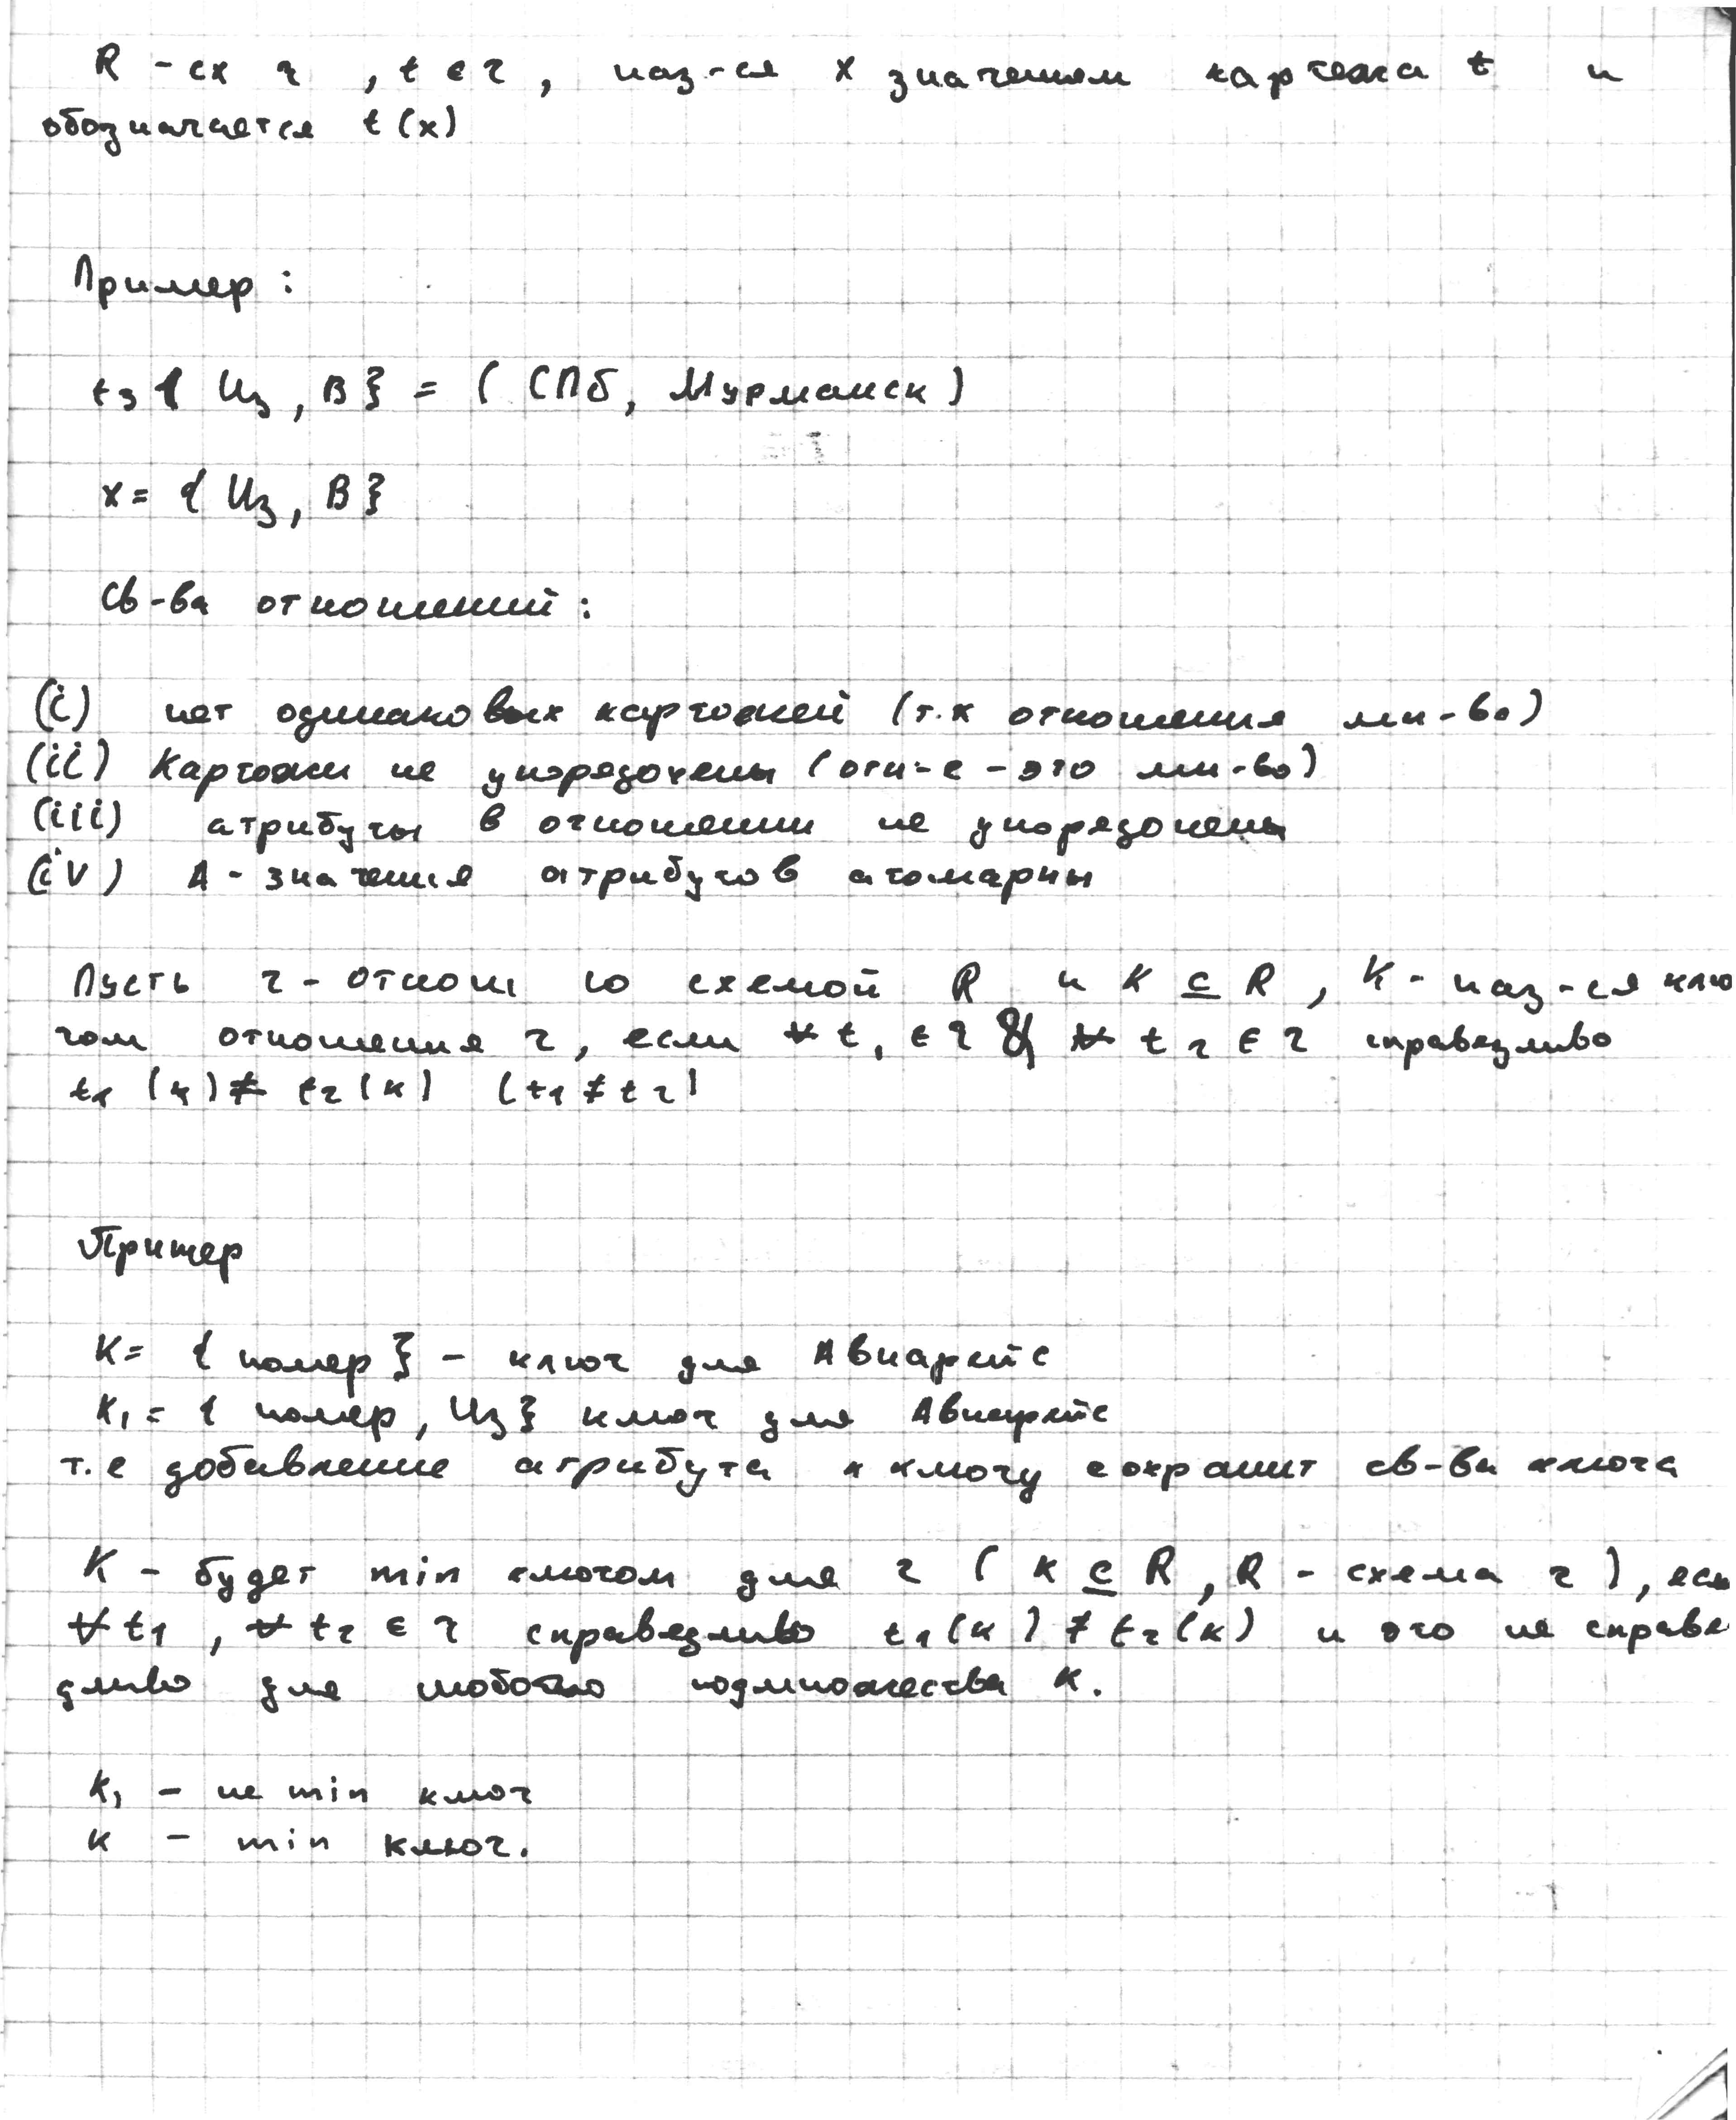 R - сх r , t ∈ r , наз-ся X значением картежа t и
обозначается t (x)
Пример :
t3 { Из , В } = ( СПб , Мурманск )
x = { Из , В }
Св-ва отношений :
(i) нет одинаковых картожей (т.к отношения мн-во)
(ii) Картожи не упорядочены (отн-е - это мн-во)
(iii) атрибуты в отношении не упорядочены
(iv) A - значения атрибутов атомарны
Пусть r - отнош со схемой R и K ⊆ R , K - наз-ся клю
чом отношения r , если ∀ t1 ∈ r & ∀ t2 ∈ r справедливо
t1 (k) ≠ t2 (k) (t1 ≠ t2)
Пример
K = { номер } - ключ для Авиарейс
K1 = { номер , Из } ключ для Авиарейс
т.е добавление атрибута к ключу сохранит св-ва ключа
K - будет min ключом для r ( K ⊆ R , R - схема r ) , если
∀ t1 , ∀ t2 ∈ r справедливо t1 (k) ≠ t2 (k) и это не справе
дливо для любого подмножества K .
K1 - не min ключ
K - min ключ .